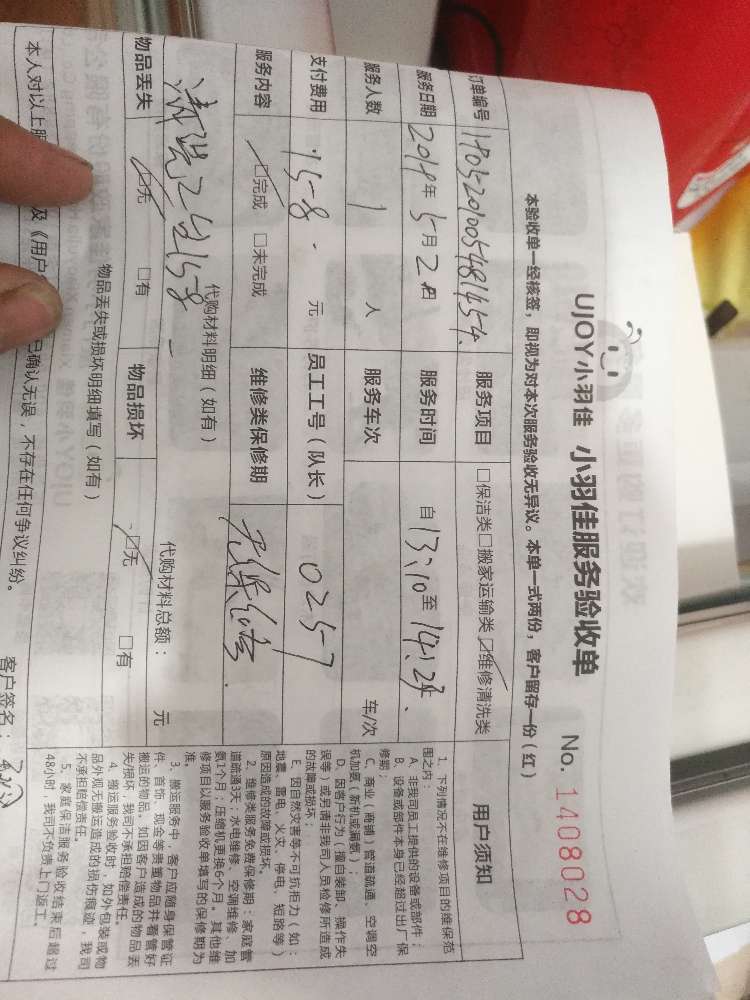 UJOY小羽佳 小羽佳服务验收单 No. 1408028
本验收单一经核签，即视为对本次服务验收无异议。本单一式两份，客户留存一份（红）
订单编号
服务项目 □保洁类□搬家运输类☑维修清洗类
服务日期 2018年5月2日 服务时间 自13:10至14:23
服务人数 1 人 服务车次 车/次
支付费用 158. 元 员工工号（队长） 0257
服务内容 ☑完成 □未完成 维修类保修期
代购材料明细（如有） 代购材料总额： 元
物品丢失 ☑无 □有 物品损坏 ☑无 □有
物品丢失或损坏明细填写（如有）
本人对以上服 及《用户 已确认无误，不存在任何争议纠纷。
客户签名：
用户须知
1、下列情况不在维修项目的维保范
围之内：
A、非我司员工提供的设备或部件；
B、设备或部件本身已经超过出厂保
修期；
C、商业（商铺）管道疏通、空调空
机加氨（新机或漏氨）；
D、因客户行为（擅自装卸、操作失
误等，或另请非我司人员检修所造成
的故障或损坏；
E、因自然灾害等不可抗拒力（如：
地震、雷电、火灾、停电、短路等）
原因造成的故障或损坏。
2、维修类服务免费保修期：家庭管
道疏通3天；水电维修、空调维修、加
氨1个月；压缩机更换6个月。其他维
修项目以服务验收单填写的保修期为
准。
3、搬运服务中，客户应随身保管证
件、首饰、现金等贵重物品并看管好
搬运的物品。如因客户造成的物品丢
失/损坏，我司不承担赔偿责任。
4、搬运服务验收时，如外包装或物
品外观无搬运造成的损伤痕迹，我司
不承担赔偿责任。
5、家庭保洁服务验收结束后超过
48小时，我司不负责上门返工。